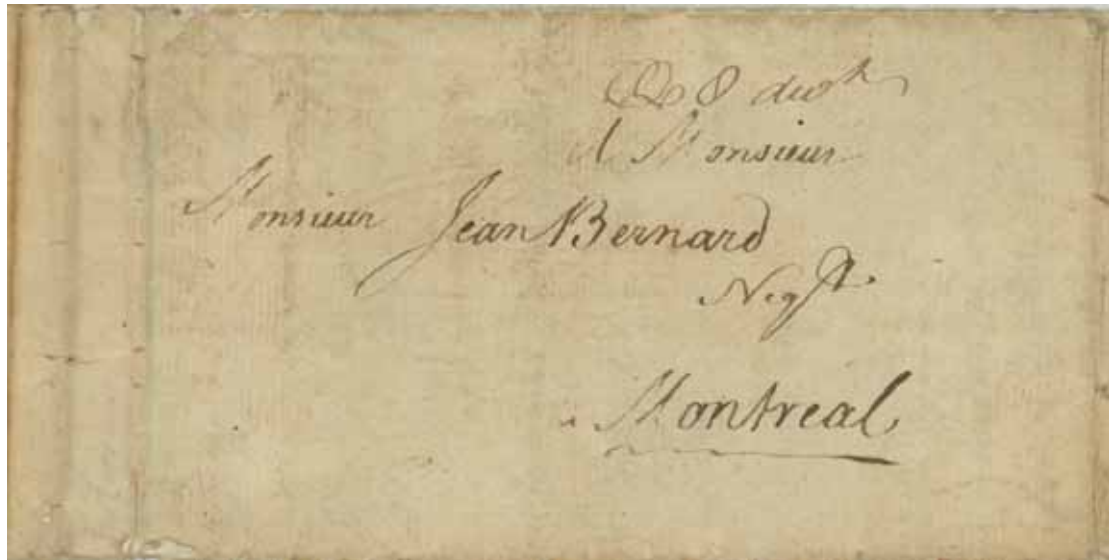 8 dwt
A Monsieur
Monsieur Jean Bernard
Negt.
a Montreal